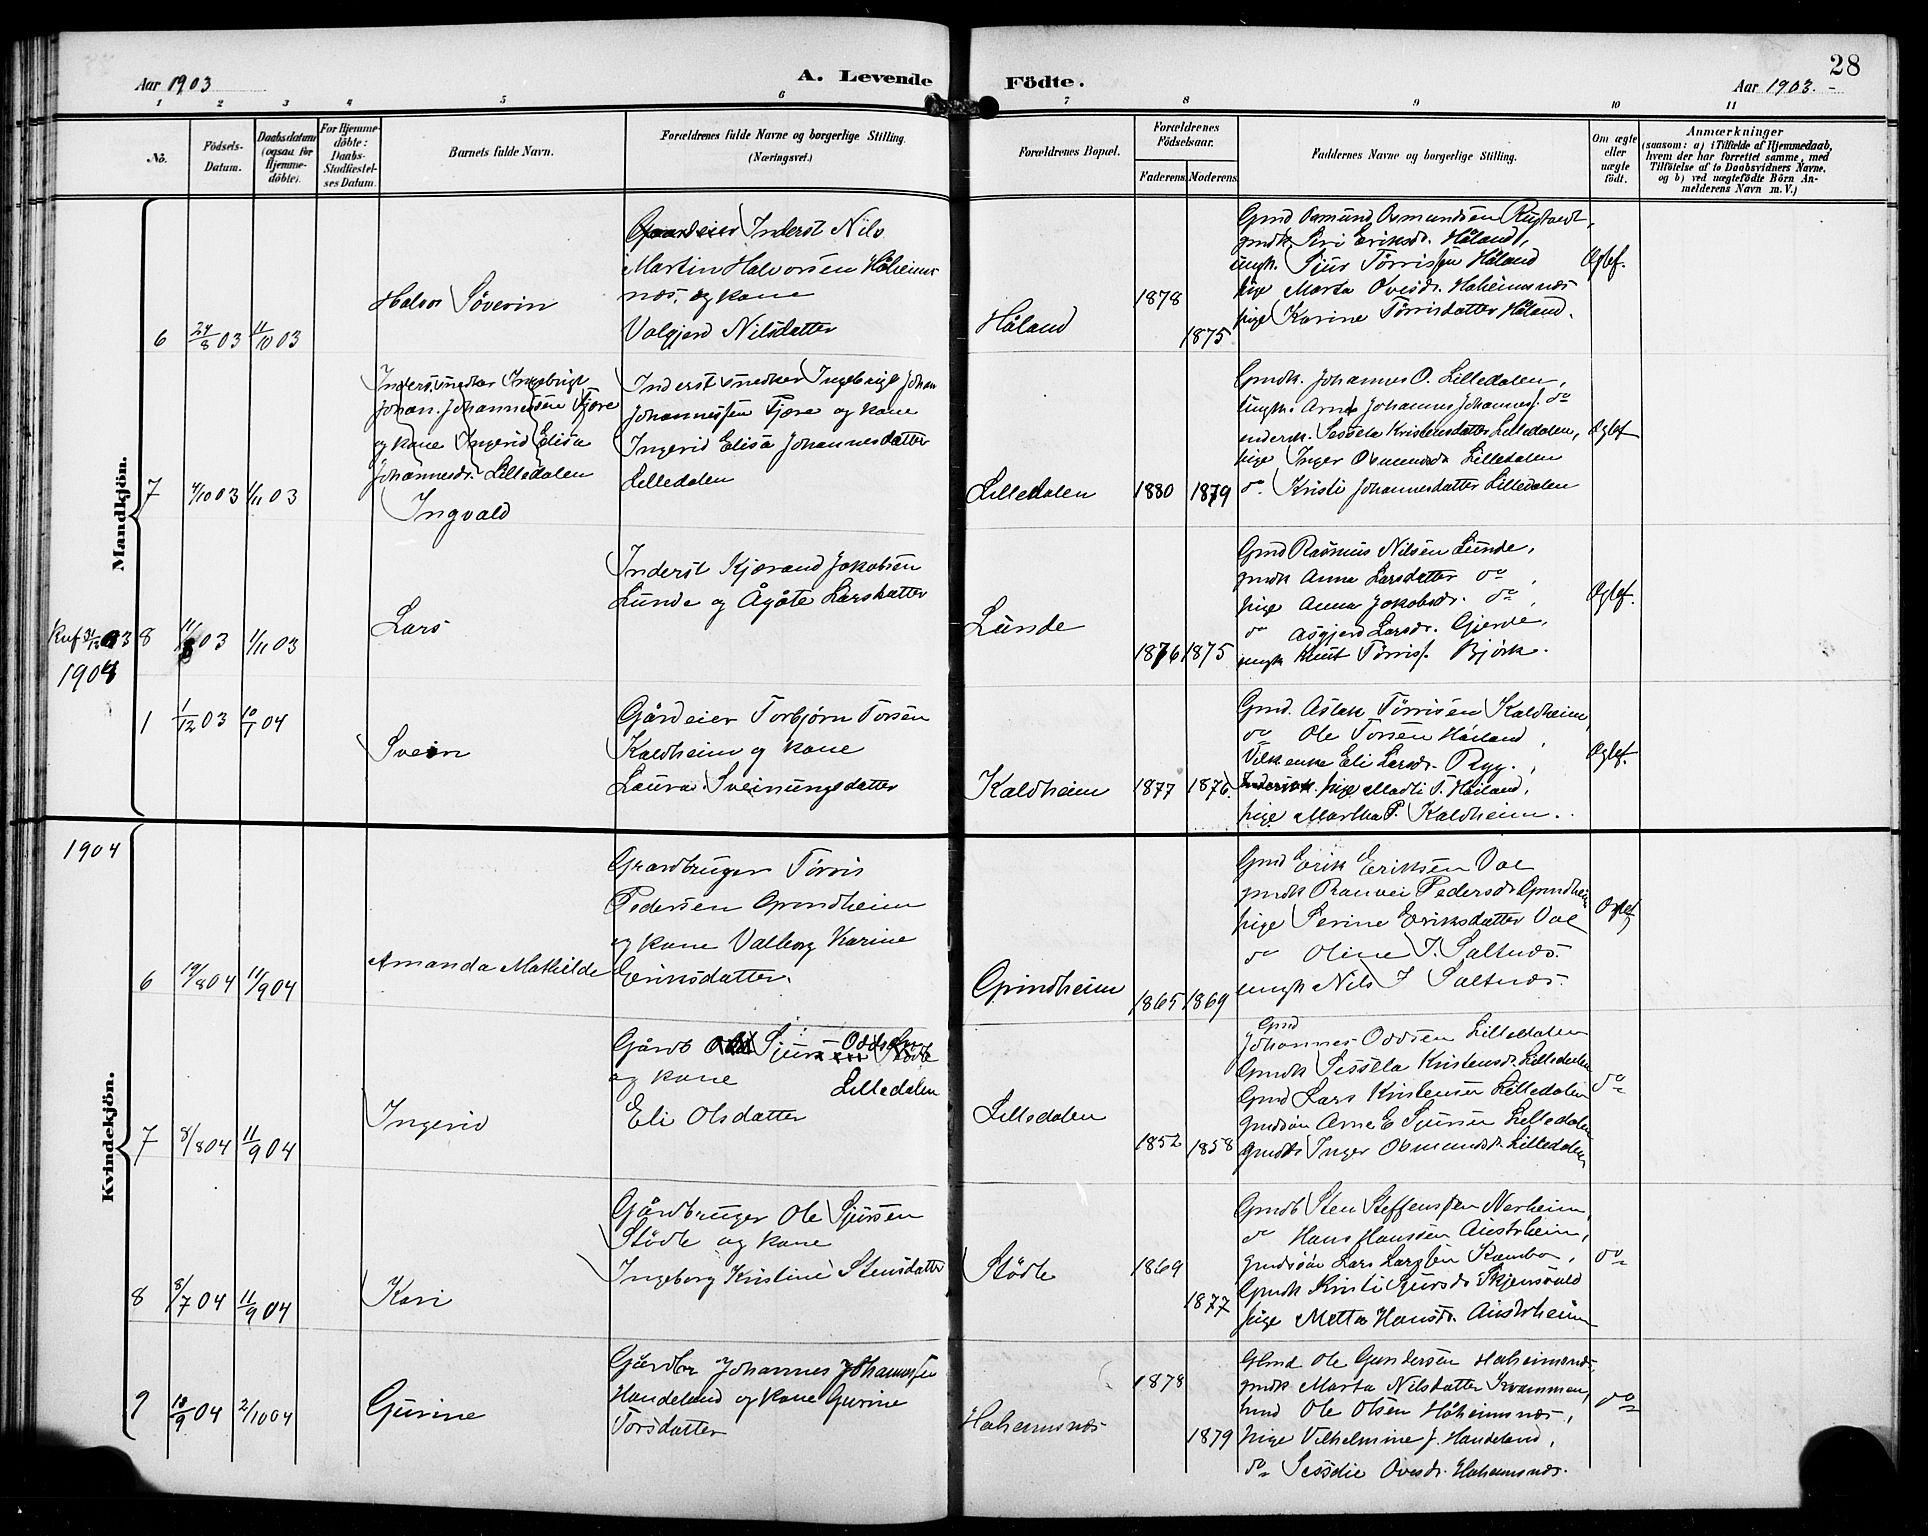 28
Aar 1903
A. Levende
Födte.
Aar 1903.
1 2 3 4 5 6 7 8 9 10 11
No.
Födsels-
Datum.
Daabsdatum
(ogsaa for
Hjemme-
döbte).
For Hjemme-
döbte:
Daabs-
Stadfæstel-
ses Datum.
Barnets fulde Navn.
Forældrenes fulde Navne og borgerlige Stilling.
(Næringsvei.)
Forældrenes Bopæl.
Forældrenes
Födselsaar.
Faderens.
Moderens.
Faddernes Navne og borgerlige Stilling.
Om ægte
eller
uægte
födt.
Anmærkninger
(saasom: a) i Tilfælde af Hjemmedaab,
hvem der har forrettet samme, med
Tilföielse af to Daabsvidners Navne,
og b) ved uægtefödte Börn An-
melderens Navn m. V.)
Mandkjön.
6
24/8 03
11/10 03
Halvor Söverin
Gaardeier Inderst Nils
Martin Halvorsen Håheims
næs, og kone
Valgjerd Nilsdatter
Håland
1878
1875
Gmd Osmund Osmundsen
gmdk. Siri Eriksd. Håland,
ungk. Sjur Törrissen Håland
pige Marta Ovesd. Haheimsnæs
pige Karine Törrisdatter Håland.
Ægtef.
7
4/10 03
1/11 03
Inderst snedker Ingebrigt
Johan. Johannessen Fjære
og kone Ingerid Elisa
Johannesdr. Lilledalen
Ingvald
Inderst snedker Ingebrigt Johan
Johannessen Fjære og kone
Ingerid Elisa Johannesdatter
Lilledalen
Lilledalen
1880
1879
Gmdk. Johannes O. Lilledalen,
ungk. Arne Johannes Johannes. do
Sessela Kristensdatter Lilledalen,
pige Inger Osmundsd. Lilledalen
do. Kristi Johannesdatter Lilledalen
Ægtef
Kuf 31/12 03
8
11/ 03
1/11 03
Lars
Inderst Kjærand Jakobsen
Lunde og Ågåte Larsdatter
Lunde
1876
1875
Gmd Rasmus Nilsen Lunde,
gmdk Anna Larsdatter do,
pige Anna Jakobsdr. do,
do Asgjerd Larsdr. Gjerde,
ungk Knut Törris. Björk.
Ægtef.
1904
1
1/12 03
10/1 04
Svein
Gårdeier Torbjørn Torsen
Kaldheim og kone
Laura Sveinungsdatter
Kaldheim
1877
1876.
Gmd. Aslak Törrisen Kaldheim,
do Ole Torsen Håland,
Eli Larsdr. Ryg.,
pige Madli T. Håland,
pige Martha P. Kaldheim.
Ægtef.
Kvindekjön.
1904
6
19/8 04
11/9 04
Amanda Mathilde
Gaardbruger Törris
Pedersen Grindheim
og kone Valborg Karine
Grindheim
1865
1869
Gmd Erik Eriksen Voe
gmdk Ranvei Pedersdr Grindheim
pige Serine Eriksdatter Voe
do Oline J. Saltnæs.
ungk Nils J Saltnæs.
Ægtef
7
8/8 04
11/9 04
Ingerid
Gårdb Odd Sjurs Oddsen Stödle
og kone Lilledalen
Eli Olsdatter
Lilledalen
1852
1858
Gmd
Johannes Oddsen Lilledalen
Gmdk Sessela Kristensd. Lilledalen
Gmd Lars Kristensen Lilledalen
gmdsön Arne E Sjursen Lilledalen
Inger Osmundsd. Lilledalen
do
8
8/7 04
11/9 04
Kari
Gårdbruger Ole Sjursen
Stödle og kone
Ingeborg Kristine Stensdatter
Stödle
1869
1877
Gmdb Sten Steffenssen Nerheim,
do Hans Hanssen Austrheim,
gmdsön Lars Larssen Rambo,
Gmdk Kristi Sjursd. Skjensvold
pige Metta Hansd. Austrheim
do
9
10/9 04
2/10 04
Gurine
Gårdbr Johannes Johannessen
Handeland og kone Gurine
Torsdatter
Haheimsnæs
1878
1879
Gmd Ole Gundersen Haheimsnæs,
gmdk Marta Nilsdatter Kvammen,
Ole Olsen Håheimsnæs,
pige Vilhelmine J. Handeland,
do Sessdie Ovesdr. Haheimsnæs.
do